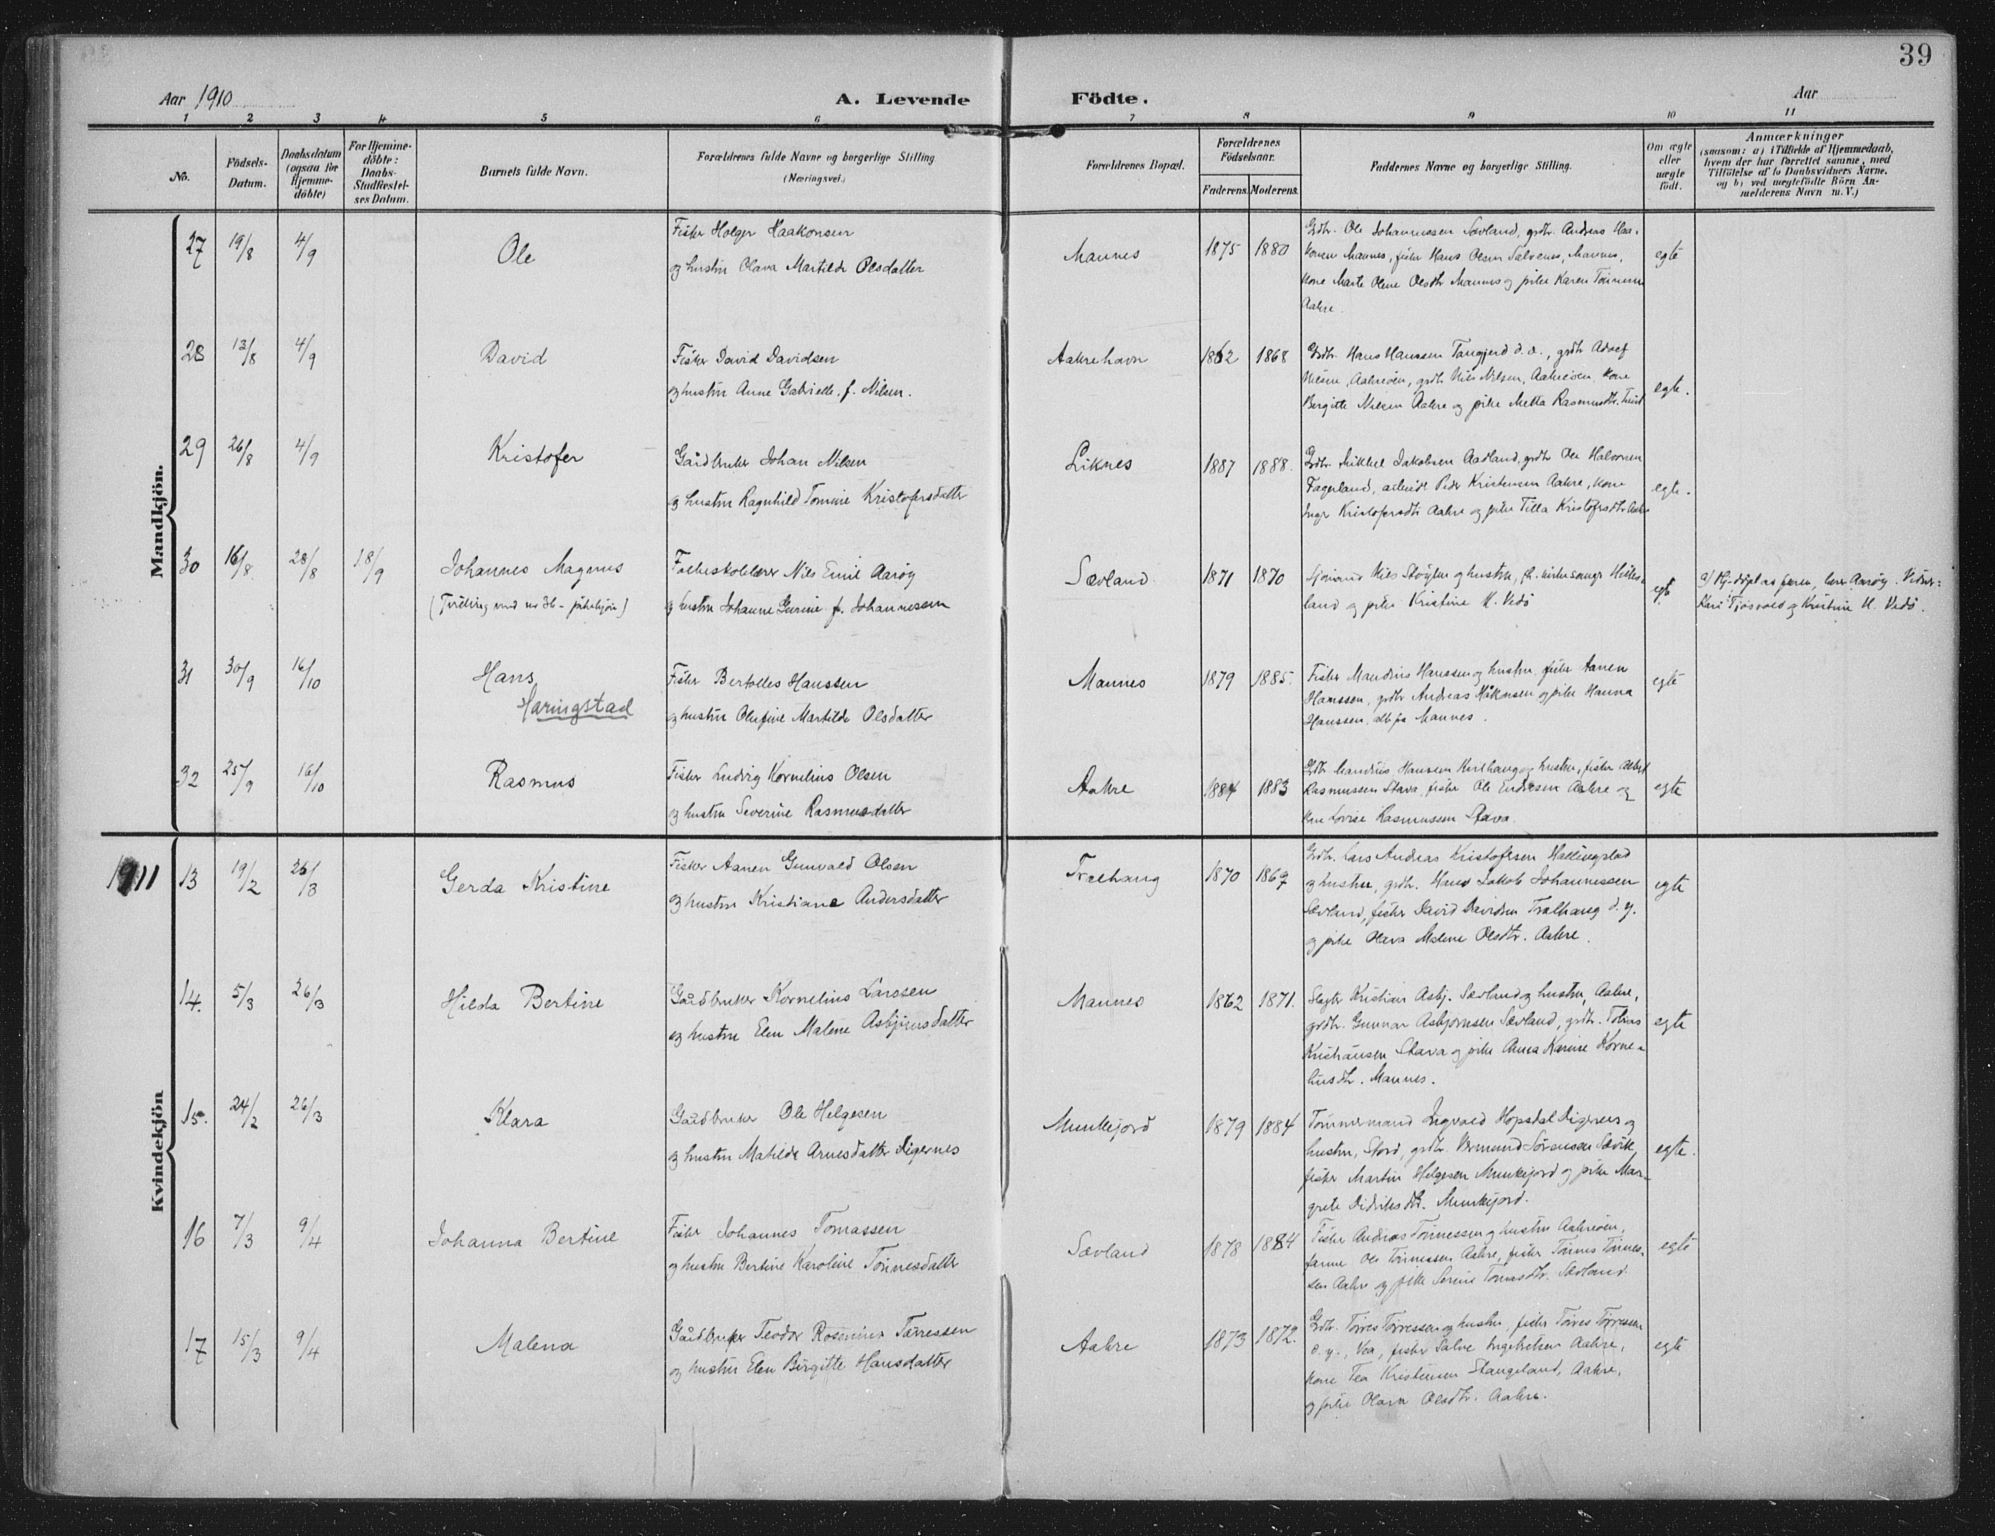 39
Aar 1910 A. Levende Födte. Aar
1 2 3 4 5 6 7 8 9 10 11
No.
Födsels-
Datum.
Daabsdatum
(ogsaa for
Hjemme-
döbte)
For Hjemme-
döbte:
Daabs-
Stadfæstel-
ses Datum.
Barnets fulde Navn.
Forældrenes fulde Navne og borgerlige Stilling
(Næringsvei.)
Forældrenes Bopæl.
Forældrenes
Fødselsaar.
Faderens. Moderens.
Faddernes Navne og borgerlige Stilling.
Om ægte
eller
uægte
födt.
Anmærkninger
(saasom: a) i Tilfælde af Hjemmedaab,
hvem der har forrettet samme, med
Tilföielse af to Daabsvidners Navne.
og b) ved uægtefödte Börn An-
melderens Navn m. V.)
Mandkjön.
27 19/8 4/9 Ole
Fisker Holger Haakonsen
og hustru Olava Martilde Olsdatter
Mannes 1875 1880
Grdbr. Ole Johannessen Sævland, grdbr. Andreas Haa-
konsen Mannes, fisker Hans Olsen Salvenes, Mannes,
kone Marte Oline Olsdtr Mannes og pike Karen Tönnesen
Aakre.
egte
28 13/8 4/9 David
Fisker David Davidsen
og hustru Anne Gabrielle f. Nilsen.
Aakrehavn 1862 1868
Grdbr. Hans Hanssen Tangjerd d.æ., grdbr Adolf
Nilsen, Aakreöen, grdbr Nils Nilsen, Aakreöen, kone
Birgitte Nilsen Aakre og pike Metta Rasmusdtr.
egte.
29 26/8 4/9 Kristofer
Gårdbruker Johan Nilsen
og hustru Ragnhild Tomine Kristofersdatter
Liknes 1887 1888.
Grdbr. Mikkel Jakobsen Aadland, grdbr Ole Halvorsen
Fagerland, arbeider Peder Kristensen Aakre, kone
Inger Kristofersdtr Aakre og pike Tilla Kristofersdtr Aakre
egte.
30 16/8 28/8 18/9 Johannes Magnus
(Tvilling med nr 36 - pikekjön)
Folkeskolelærer Nils Emil Aaröy
og hustru Johanne Gurine f. Johannesen
Sævland 1871 1870
Sjömand Nils Stöylen og hustru, fh. kirkesanger Helles-
land og pike Kristine H. Vedö
egte
a) Hj-döpt av faren, lærer Aaröy. Vidner:
Kari Tjösvold og Kristine H. Vedö.
31 30/9 16/10 Hans
Haringstad
Fisker Bertolles Hanssen
og hustru Olufine Martilde Olsdatter
Mannes 1879 1885.
Fisker Mandrus Hanssen og hustru, fisker Aanen
Hanssen, grdbr Andreas Håkonsen og pike Hanna
Hanssen, alle fra Mannes.
egte
32 25/9 16/10 Rasmus
Fisker Ludvig Kornelius Olsen
og hustru Severine Rasmusdatter
Aakre 1884 1883
Grdbr Mandrus Hanssen og hustru, fisker Albert
Rasmussen Stava, fisker Ole Endresen Aakre og
kone Lovise Rasmussen Stava.
egte
1911
Kvindekjön
13 19/2 26/3 Gerda Kristine
Fisker Aanen Gunvald Olsen
og hustru Kristiane Andersdatter
Trælhaug 1870 1867
Grdbr. Lars Andreas Kristofersen Hallingstad
og hustru, grdbr. Hans Jakob Johannessen
Sævland, fisker David Davidsen Trælhaug d.y.
og pike Olava Malene Olsdtr. Aakre.
egte
14. 5/3 26/3 Hilda Bertine
Gårdbruker Kornelius Larssen
og hustru Elen Malene Asbjörnsdatter
Mannes 1862 1871.
Slagter Kristian Asbj. Sævland og hustru, Aakre,
grdbr. Gunnar Asbjørnsen Sævland, grdbr. Tobias
Kristiansen Stava og pike Anna Karine Korne-
liusdtr. Mannes.
egte
15. 24/2 26/3 Klara
Gårdbruker Ole Helgesen
og hustru Matilde Arnesdatter Digernes
Munkejord 1879 1884
Tömmermand Ingvald Hopsdal Digernes og
hustru, Stord, grdbr. Sörensen Sævik,
fisker Martin Helgesen Munkejord og pike Mar-
grete Didriksdtr. Munkejord.
egte.
16 7/3 9/4 Johanna Bertine
Fisker Johannes Tomassen
og hustru Bertine Karoline Tönnesdatter
Sævland 1878 1884
Fisker Andreas Tönnessen og hustru Aakreöen,
Ole Tönnessen Aakre, fisker Tönnes Tönnes-
sen Aakre og pike Serine Tomasdtr. Sævland.
egte
17 15/3 9/4 Malena
Gårdbruker Teodor Rosenius Tørressen
og hustru Elen Birgitte Hansdatter
Aakre 1873 1872.
Grdbr. Törres Törressen og hustru, fisker Törres Törressen
d.y., Vea, fisker Salve Ingebretsen Aakre,
kone Tea Kristensen Stangeland, Aakre,
og pike Olava Olsdtr. Aakre.
egte